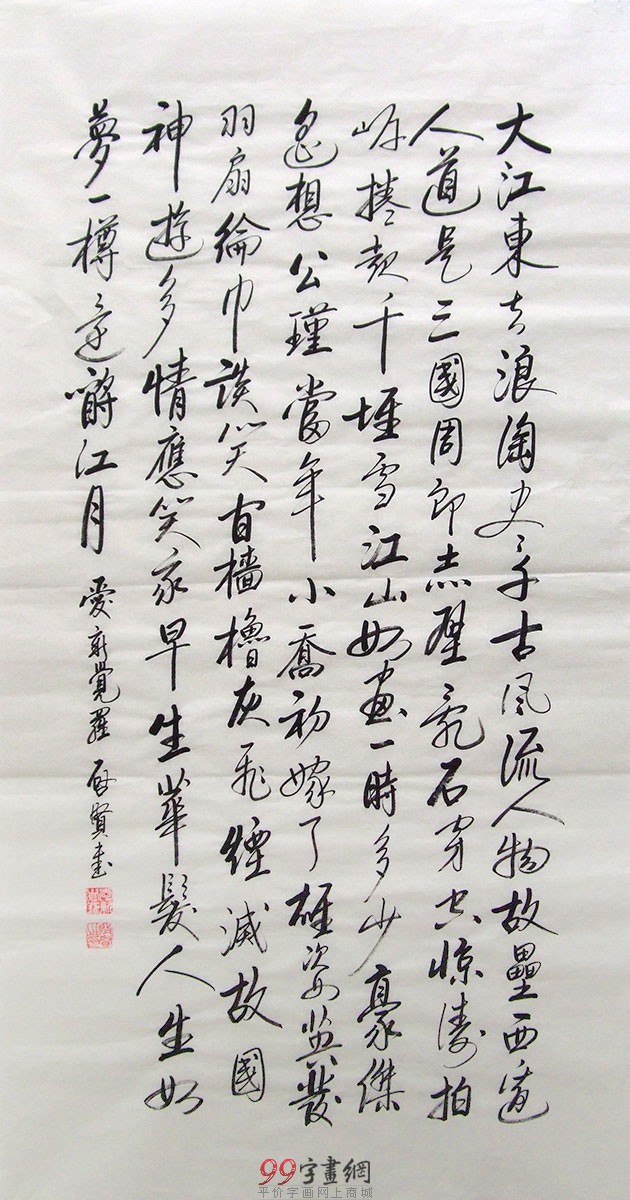 大江東去浪淘盡千古風流人物故壘西邊
人道是三國周郎赤壁亂石穿空惊濤拍
岸捲起千堆雪江山如畫一時多少豪傑
遙想公瑾當年小喬初嫁了雄姿英發
羽扇綸巾談笑間檣櫓灰飛煙滅故國
神遊多情應笑我早生華髮人生如
夢一樽還酹江月 愛新覺羅 启賢書
99字畫網
平价字画网上商城